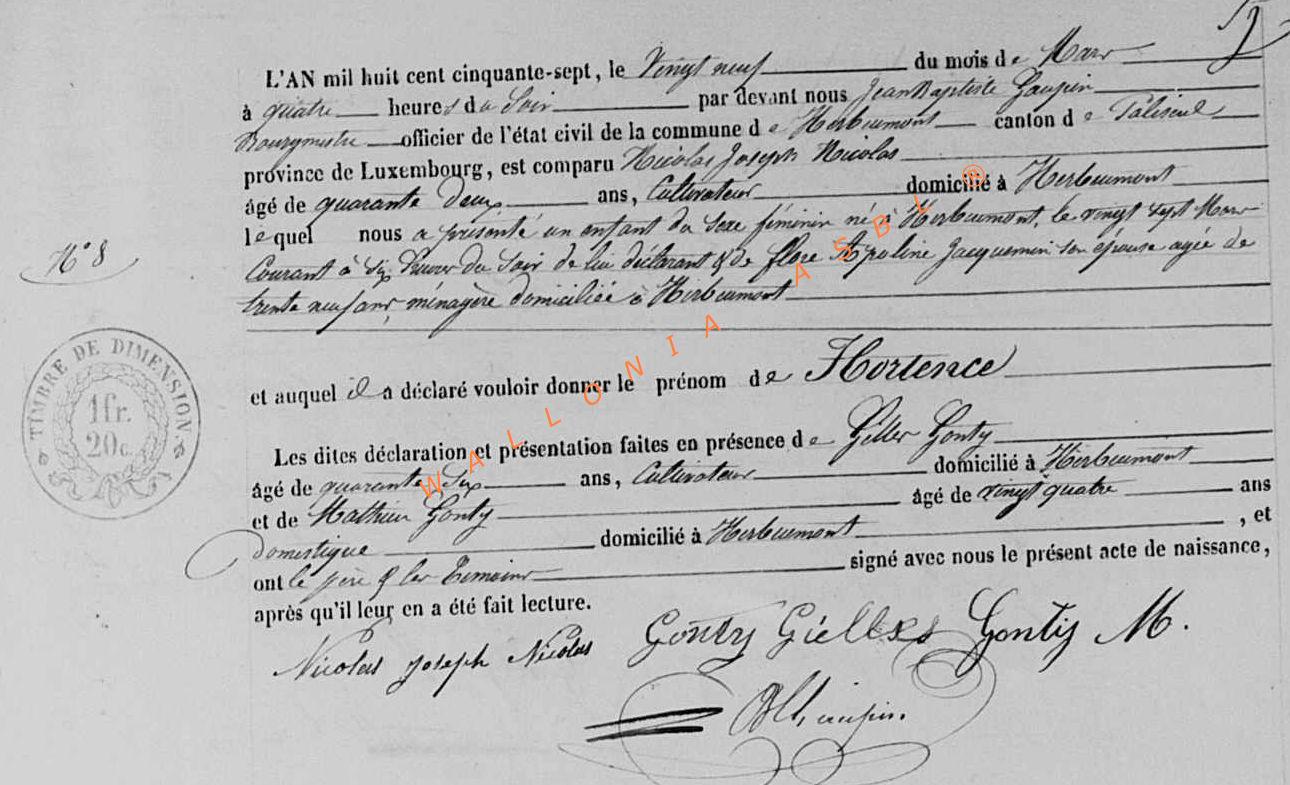 L'AN mil huit cent cinquante-sept, le Vingt neuf du mois de Mars
à quatre heures du Soir par devant nous Jean Baptiste
Bourgmestre officier de l'état civil de la commune de Herbeumont canton de Paliseul
province de Luxembourg, est comparu Nicolas Joseph Nicolas
âgé de quarante deux ans, Cultivateur domicilié à Herbeumont
lequel nous a présenté un enfant du Sexe féminin né à Herbeumont, le vingt sept Mars
Courant à Six heures du Soir de lui déclarant & de flore Apoline Jacquemin son épouse agée de
trente neuf ans, ménagère domiciliée à Herbeumont
N° 8
TIMBRE DE DIMENSION
1 fr.
20 c.
et auquel il a déclaré vouloir donner le prénom de Hortence
Les dites déclaration et présentation faites en présence de Gilles Gonty
âgé de quarante Six ans, Cultivateur domicilié à Herbeumont
et de Mathieu Gonty âgé de vingt quatre ans
domestique domicilié à Herbeumont, et
ont le père & les Temoins signé avec nous le présent acte de naissance,
après qu'il leur en a été fait lecture.
Nicolas Joseph Nicolas Gonty Gielles Gontis M.
WALLONIA ASBL ®